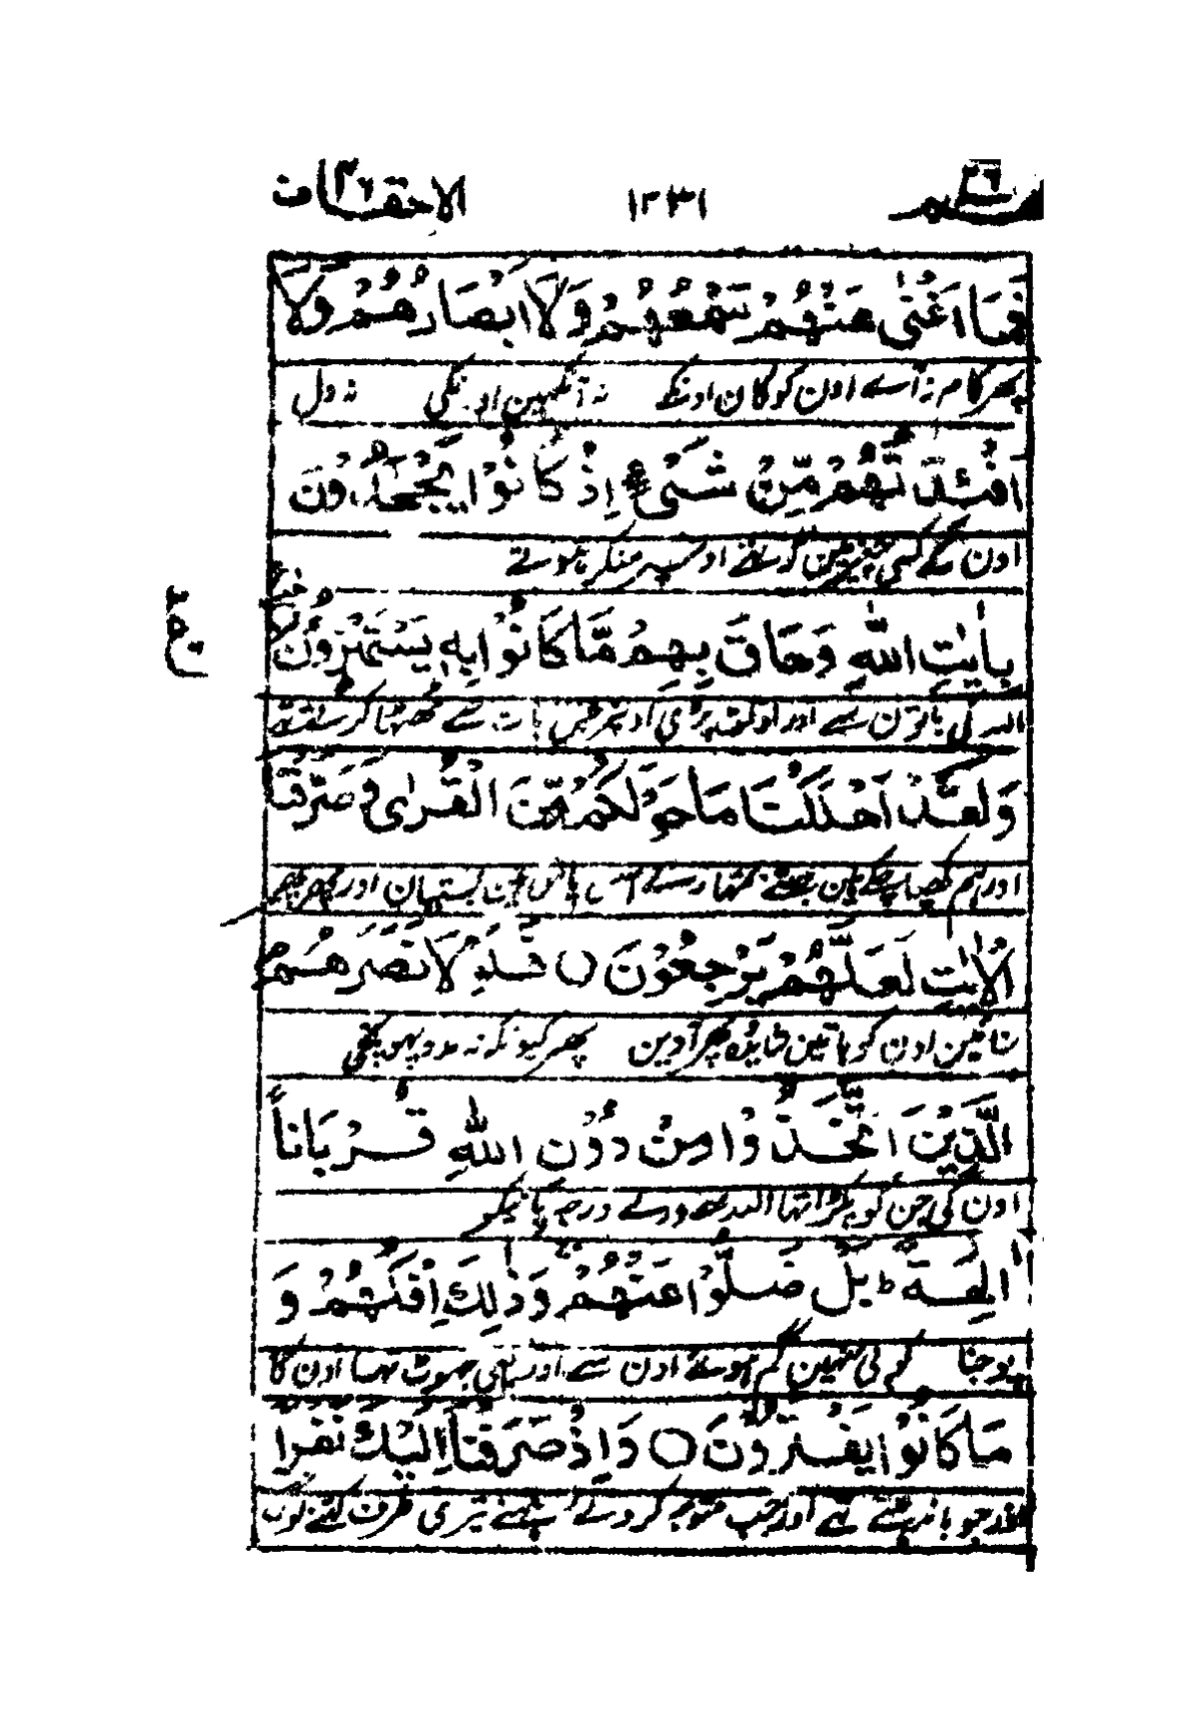 حم ٢٦ ١٢٣١ الاحقاف ٤٦
فَمَا اَغْنٰى عَنْهُمْ سَمْعُهُمْ وَلَا اَبْصَارُهُمْ وَلَا
پھر کام نہ آے اون کو کان اونکے نہ آنکھین اونکی نہ دل
اَفْئِدَتُهُمْ مِّنْ شَىْءٍ اِذْ كَانُوْا يَجْحَدُوْنَ
اون کے کسی چیز مین اسلئے اوسپر منکر ہوتے
بِاٰيٰتِ اللّٰهِ وَحَاقَ بِهِمْ مَّا كَانُوْا بِهٖ يَسْتَهْزِءُوْنَ
اللہ کی باتون سے اور اولٹ پڑی اونپر جس بات سے ٹھٹھا کرتے تھے
وَلَقَدْ اَهْلَكْنَا مَا حَوْلَكُمْ مِّنَ الْقُرٰى وَصَرَّفْنَا
اور ہم کھپا چکے ہین جتنے تمھارے آس پاس ہین بستیان اور پھیر پھیر
الْاٰيٰتِ لَعَلَّهُمْ يَرْجِعُوْنَ ○ فَلَوْلَا نَصَرَهُمُ
سنائین اون کو باتین شاید وہ پھر آوین پھر کیون نہ مدد پہونچی
الَّذِيْنَ اتَّخَذُوْا مِنْ دُوْنِ اللّٰهِ قُرْبَاناً
اون کی جن کو پکڑا تھا اللہ سے ورے درجہ پانیکو
اٰلِهَةً ط بَلْ ضَلُّوْا عَنْهُمْ وَذٰلِكَ اِفْكُهُمْ وَ
پوجنا کوئی نہین گم ہوئے اون سے اور یہی جھوٹ تھا اون کا
مَا كَانُوْا يَفْتَرُوْنَ ○ وَاِذْ صَرَفْنَا اِلَيْكَ نَفَرًا
اور جو باندھتے تھے اور جب متوجہ کر دئے ہمنے تیری طرف کتنے لوگ